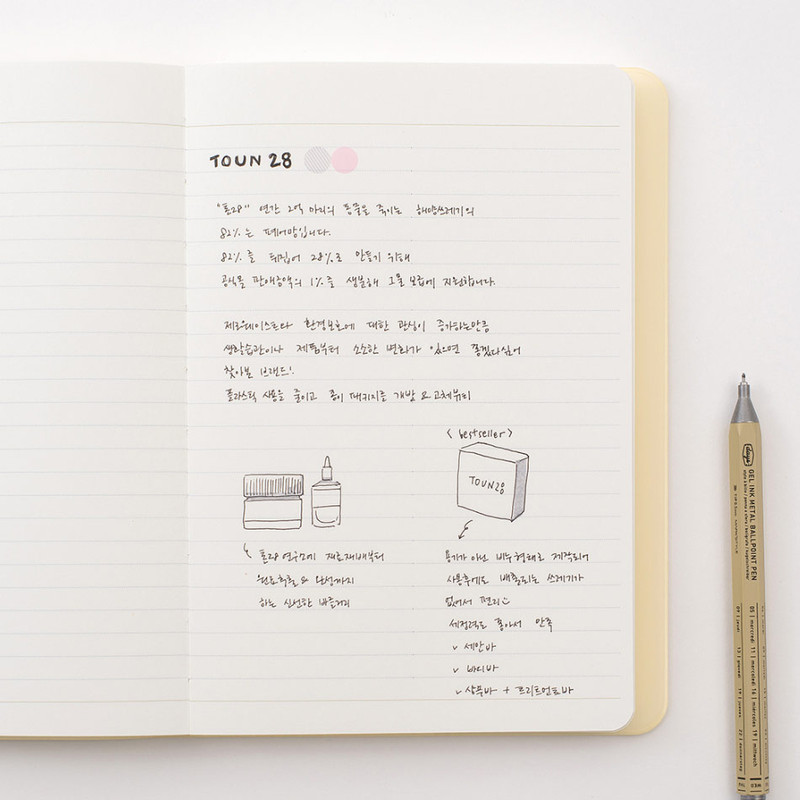 TOUN 28
"톤28" 연간 2억 마리의 동물을 죽이는 해양쓰레기의
82%는 폐어망입니다.
82%를 뒤집어 28%로 만들기 위해
공식몰 판매금액의 1%를 생분해 그물 보급에 지원합니다.
제로웨이스트다 환경보호에 대한 관심이 증가하는만큼
생활습관이나 제품부터 소소한 변화가 있으면 좋겠다싶어
찾아본 브랜드!
플라스틱 사용을 줄이고 종이 패키지를 개발 & 고체뷰티
톤28 연구소에 재료재배부터
원료추출 & 완성까지
하는 신선한 바를거리
< bestseller >
TOUN28
용기가 아닌 비누형태로 제작되어
사용후에도 배출되는 쓰레기가
없어서 편리
세정력도 좋아서 만족
✓ 세안바
✓ 바디바
✓ 샴푸바 + 트리트먼트바
days
GEL INK METAL BALLPOINT PEN
05 | mercredi 11 | mercoledì 16 | miércoles 19 | mittwoch